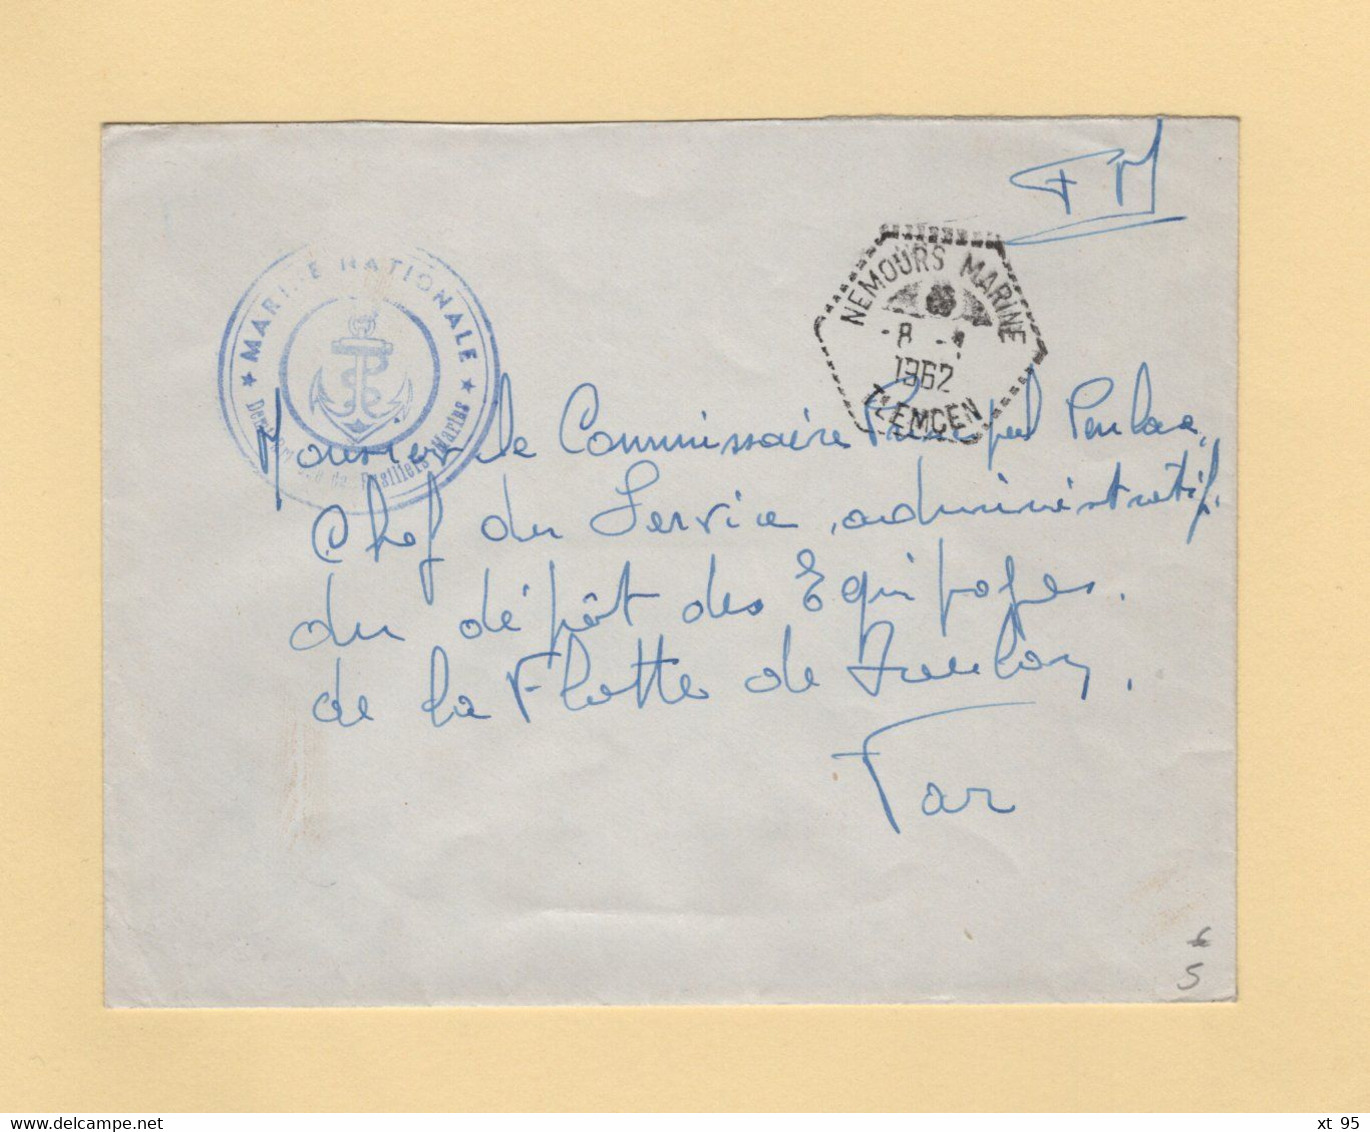 F M
MARINE NATIONALE
Fusiliers Marins
NEMOURS MARINE
-8 -
1962
TLEMCEN
Monsieur le Commissaire Principal
Chef du Service administratif
du dépôt des Equipages
de la Flotte de Toulon.
Var
6
5
delcampe.net
xt 95